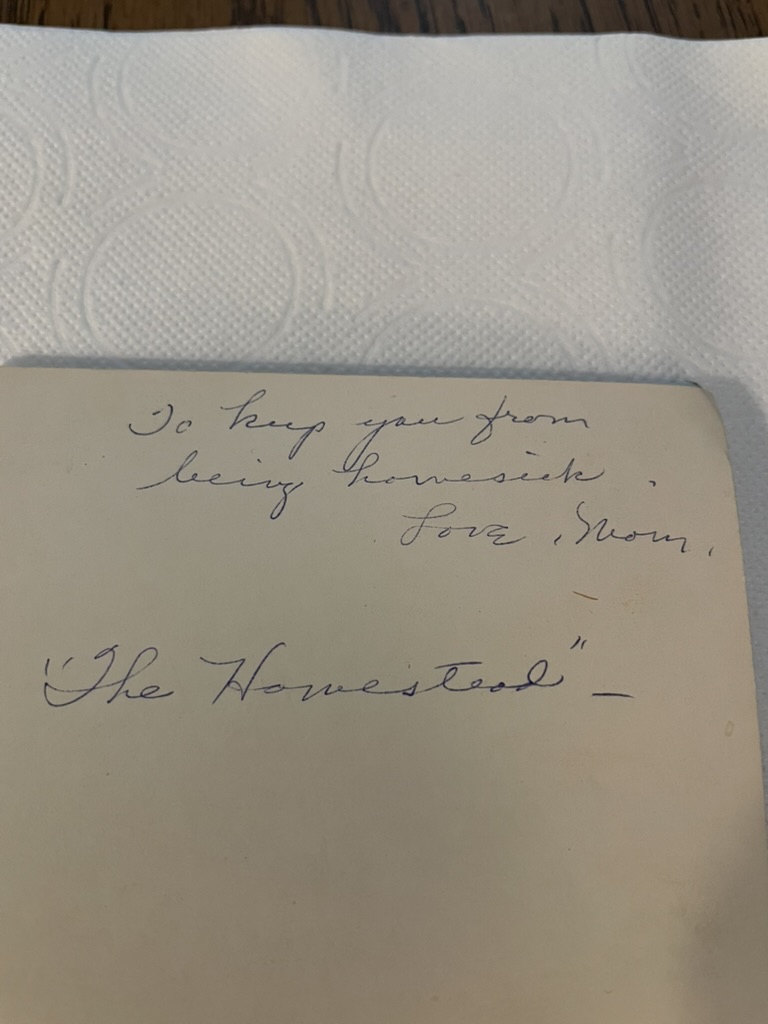 To keep you from
being homesick.
Love, Mom.
"The Homestead" –